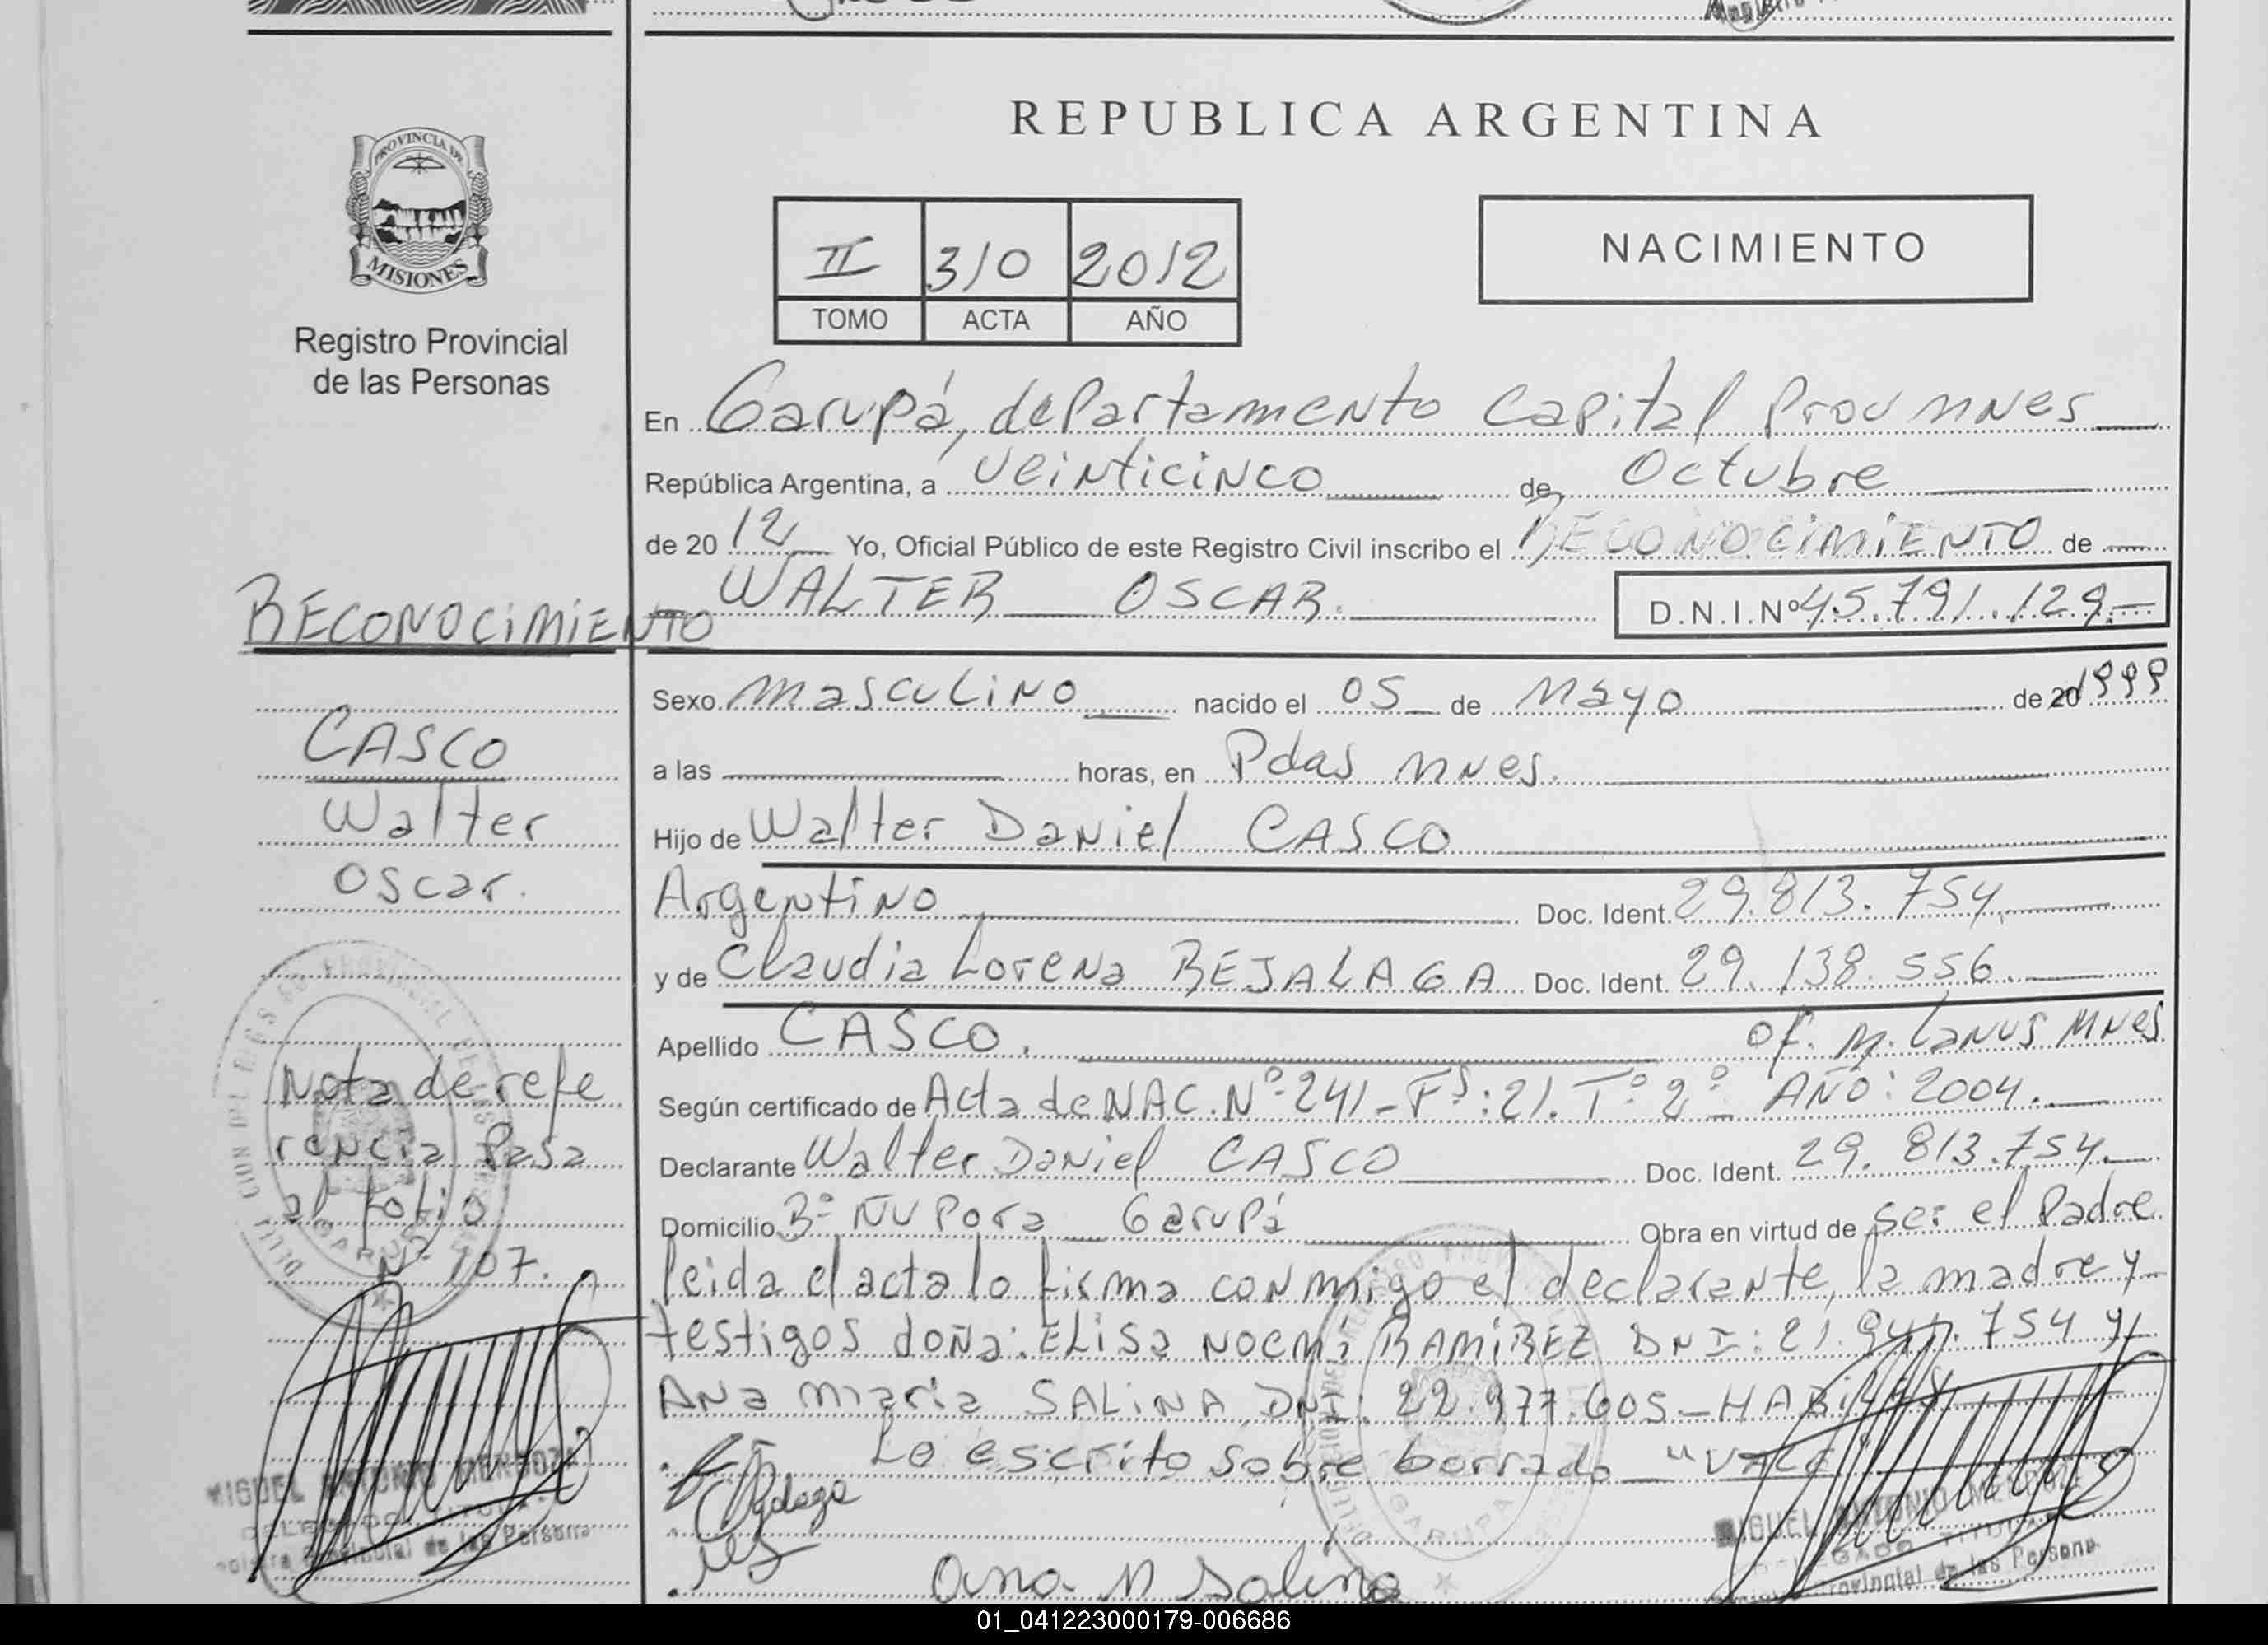 REPUBLICA ARGENTINA
PROVINCIA DE
MISIONES
Registro Provincial
de las Personas
II 310 2012
TOMO ACTA AÑO
NACIMIENTO
En Garupá, departamento Capital Prov mnes
República Argentina, a veinticinco de Octubre
de 20 12 Yo, Oficial Público de este Registro Civil inscribo el RECONOCIMIENTO de
WALTER OSCAR. D.N.I.Nº 45.791.129.-
RECONOCIMIENTO
CASCO
Walter
Oscar.
Nota de refe
rencia Pasa
al folio
Nº 107.
Sexo masculino nacido el 05 de Mayo de 20 1999
a las horas, en Pdas mnes.
Hijo de Walter Daniel CASCO
Argentino Doc. Ident. 29.813.754.
y de Claudia Lorena BEJALAGA Doc. Ident. 29.138.556.
Apellido CASCO. of. M. Lanus Mnes
Según certificado de Acta de NAC. Nº 241 - Fº: 21. Tº 2º AÑO: 2004.
Declarante Walter Daniel CASCO Doc. Ident. 29.813.754.
Domicilio Bº ÑU Pora Garupá Obra en virtud de ser el Padre
leida el acta lo firma conmigo el declarante, la madre y
testigos doña: ELisa NOEMi RAMiREZ DNI: 21. .754 y
ANa maria SALiNA DNI: 22.977.605 - HABiLES
Lo escrito sobre borrado "VALE"
Ana M Salina
MIGUEL ANTONIO MENDOZA
DELEGADO TITULAR
Registro Provincial de las Personas
MIGUEL ANTONIO MENDOZA
DELEGADO TITULAR
Provincial de las Persona
GARUPA
GARUPA
01_041223000179-006686